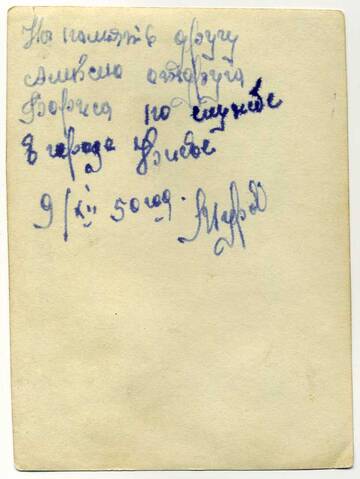 На память другу
Алексею от друга
Бориса по службе
В городе Киеве
9/XII 50 год.